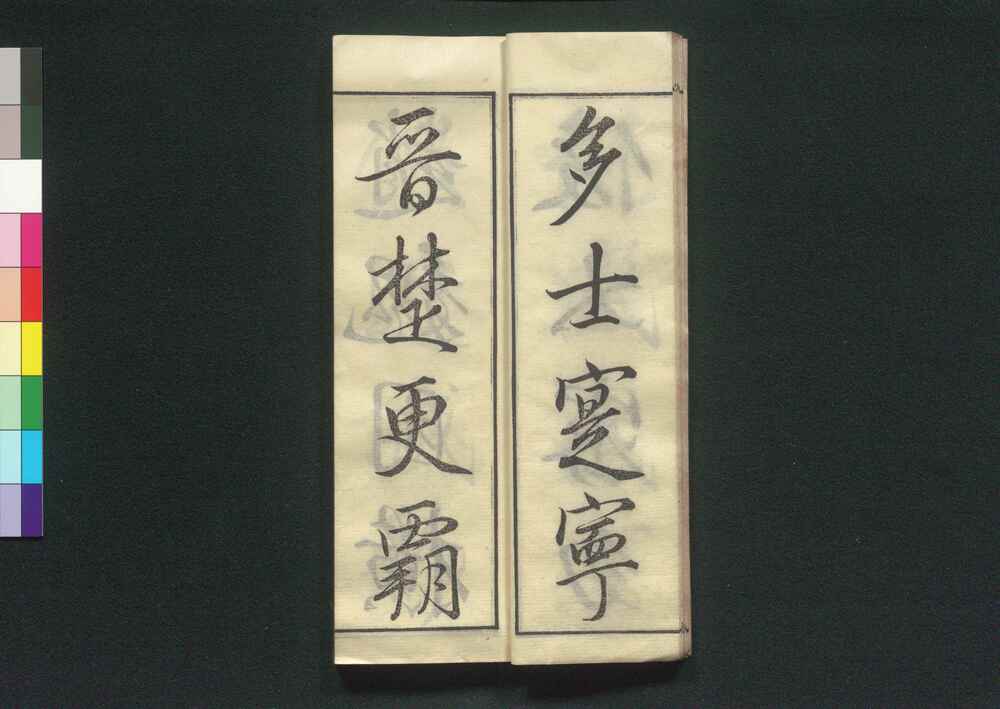 多士寔寧
晉楚更霸